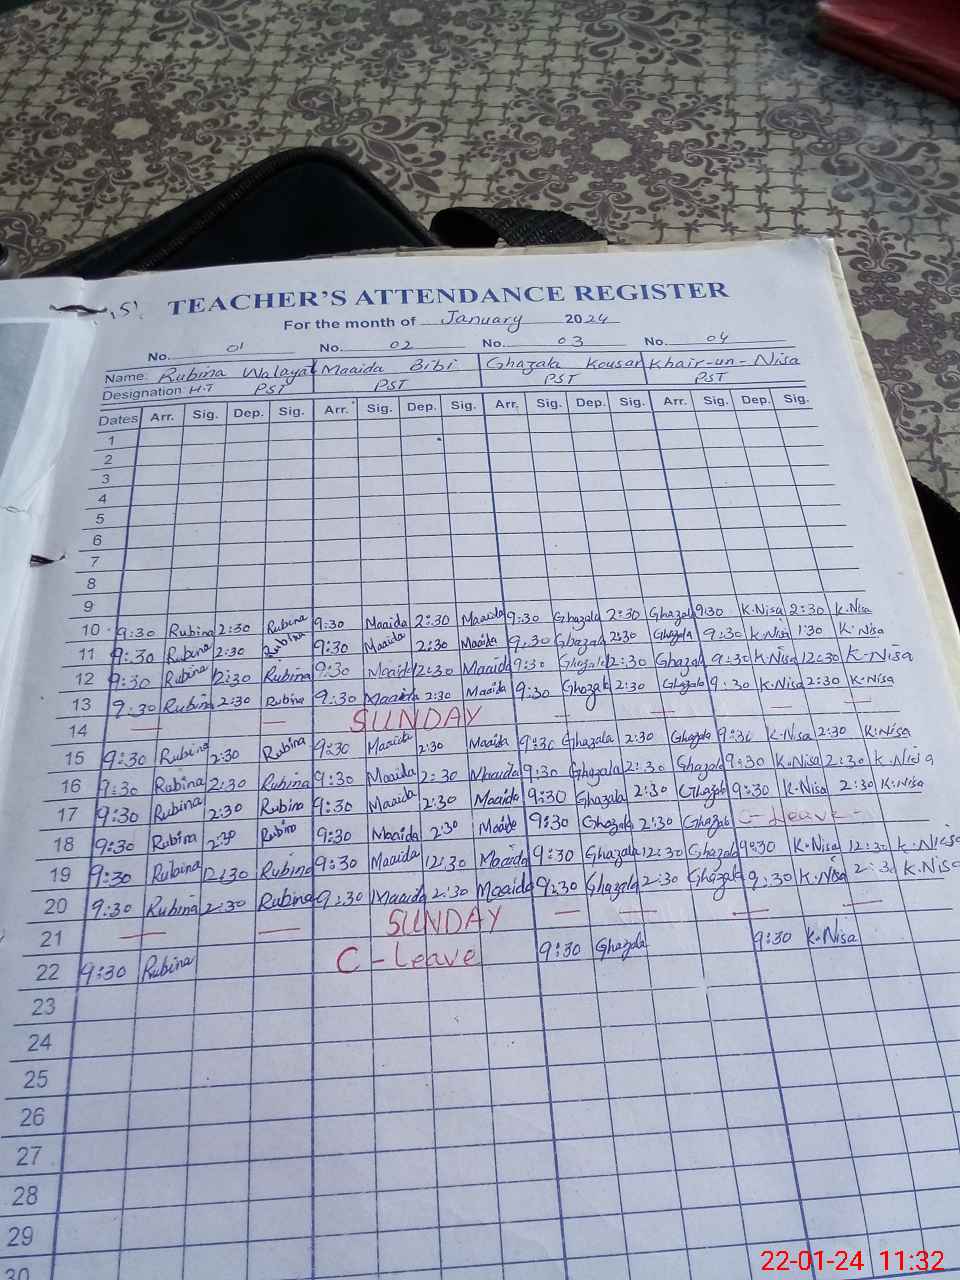 TEACHER'S ATTENDANCE REGISTER
For the month of January 2024
No. 01 No. 02 No. 03 No. 04
Name: Rubina Walayat Maaida Bibi Ghazala Kousar Khair-un-Nisa
Designation: H.T PST PST PST PST
Dates Arr. Sig. Dep. Sig. Arr. Sig. Dep. Sig. Arr. Sig. Dep. Sig. Arr. Sig. Dep. Sig.
1
2
3
4
5
6
7
8
9
10 9:30 Rubina 2:30 Rubina 9:30 Maaida 2:30 Maaida 9:30 Ghazala 2:30 Ghazala 9:30 K.Nisa 2:30 K.Nisa
11 9:30 Rubina 2:30 Rubina 9:30 Maaida 2:30 Maaida 9:30 Ghazala 2:30 Ghazala 9:30 K.Nisa 1:30 K.Nisa
12 9:30 Rubina 12:30 Rubina 9:30 Maaida 12:30 Maaida 9:30 Ghazala 12:30 Ghazala 9:30 K.Nisa 12:30 K-Nisa
13 9:30 Rubina 2:30 Rubina 9:30 Maaida 2:30 Maaida 9:30 Ghazala 2:30 Ghazala 9:30 K.Nisa 2:30 K.Nisa
14 — — SUNDAY — — — —
15 9:30 Rubina 2:30 Rubina 9:30 Maaida 2:30 Maaida 9:30 Ghazala 2:30 Ghazala 9:30 K.Nisa 2:30 K.Nisa
16 9:30 Rubina 2:30 Rubina 9:30 Maaida 2:30 Maaida 9:30 Ghazala 2:30 Ghazala 9:30 K.Nisa 2:30 K.Nisa
17 9:30 Rubina 2:30 Rubina 9:30 Maaida 2:30 Maaida 9:30 Ghazala 2:30 Ghazala 9:30 K.Nisa 2:30 K.Nisa
18 9:30 Rubina 2:30 Rubina 9:30 Maaida 2:30 Maaida 9:30 Ghazala 2:30 Ghazala C-Leave-
19 9:30 Rubina 12:30 Rubina 9:30 Maaida 12:30 Maaida 9:30 Ghazala 12:30 Ghazala 9:30 K.Nisa 12:30 K.Nisa
20 9:30 Rubina 2:30 Rubina 9:30 Maaida 2:30 Maaida 9:30 Ghazala 2:30 Ghazala 9:30 K.Nisa 2:30 K.Nisa
21 — — SUNDAY — — — —
22 9:30 Rubina C-Leave 9:30 Ghazala 9:30 K.Nisa
23
24
25
26
27
28
29
30
22-01-24 11:32